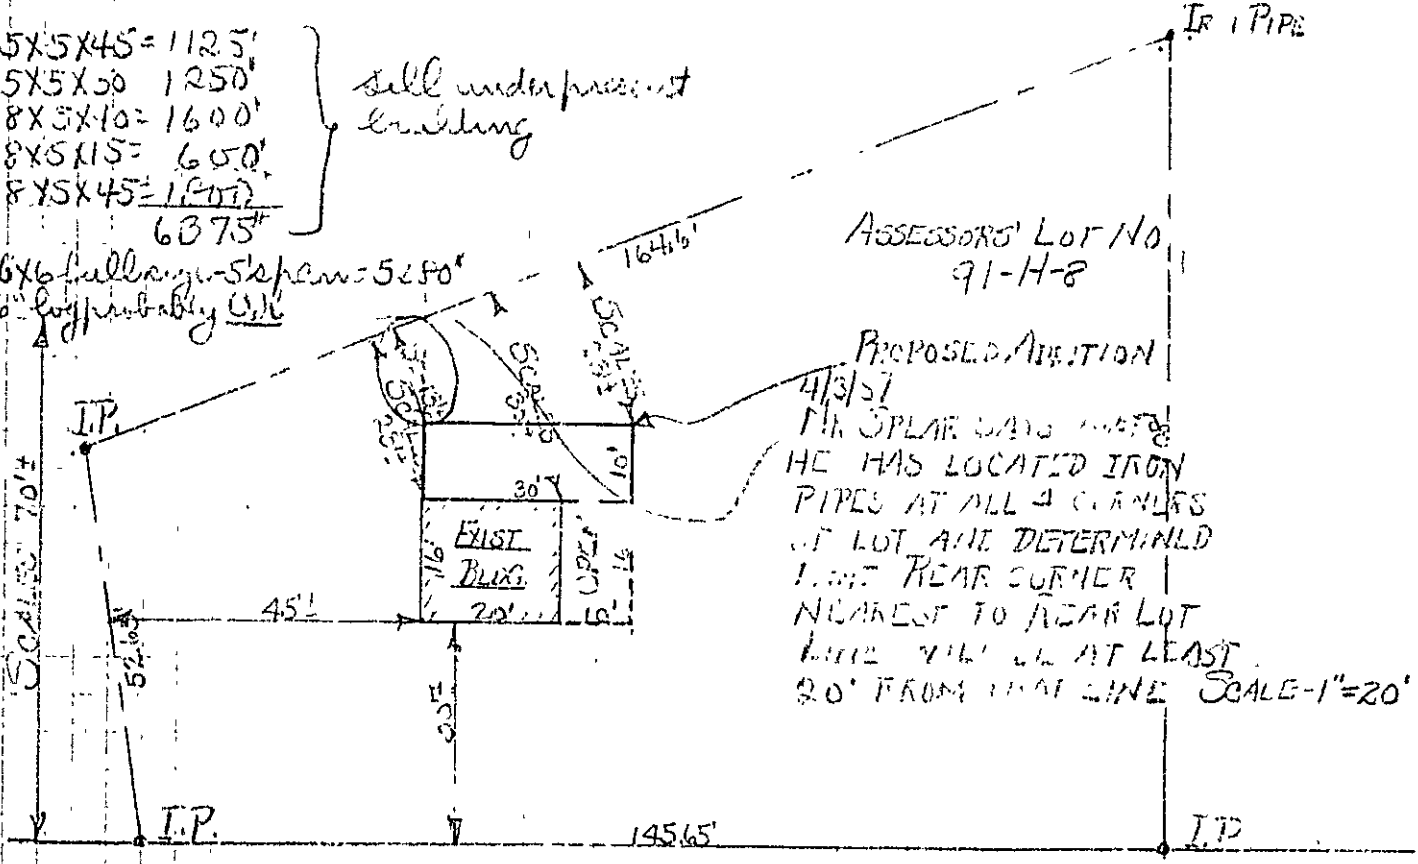 5X5X45=1125'
5X5X50 1250'
8X5X40=1600'
8X5X15= 600'
8X5X45=1800'
6375#
sill under present
building
6X6 full size-5' span=5280#
log probably O.K.
IR. PIPE
164.6'
ASSESSORS' LOT NO.
91-H-8
PROPOSED ADDITION
4/3/57
MR SPEAR SAYS THAT
HE HAS LOCATED IRON
PIPES AT ALL 4 CORNERS
OF LOT AND DETERMINED
THAT REAR CORNER
NEAREST TO REAR LOT
LINE WILL BE AT LEAST
20' FROM THAT LINE SCALE-1"=20'
I.P.
SCALES 70'±
SCALES
SCALES
SCALES
30'
10'
EXIST.
BLDG.
16'
20'
OPEN
16'
45'±
52.65'
I.P.
145.65'
I.P.